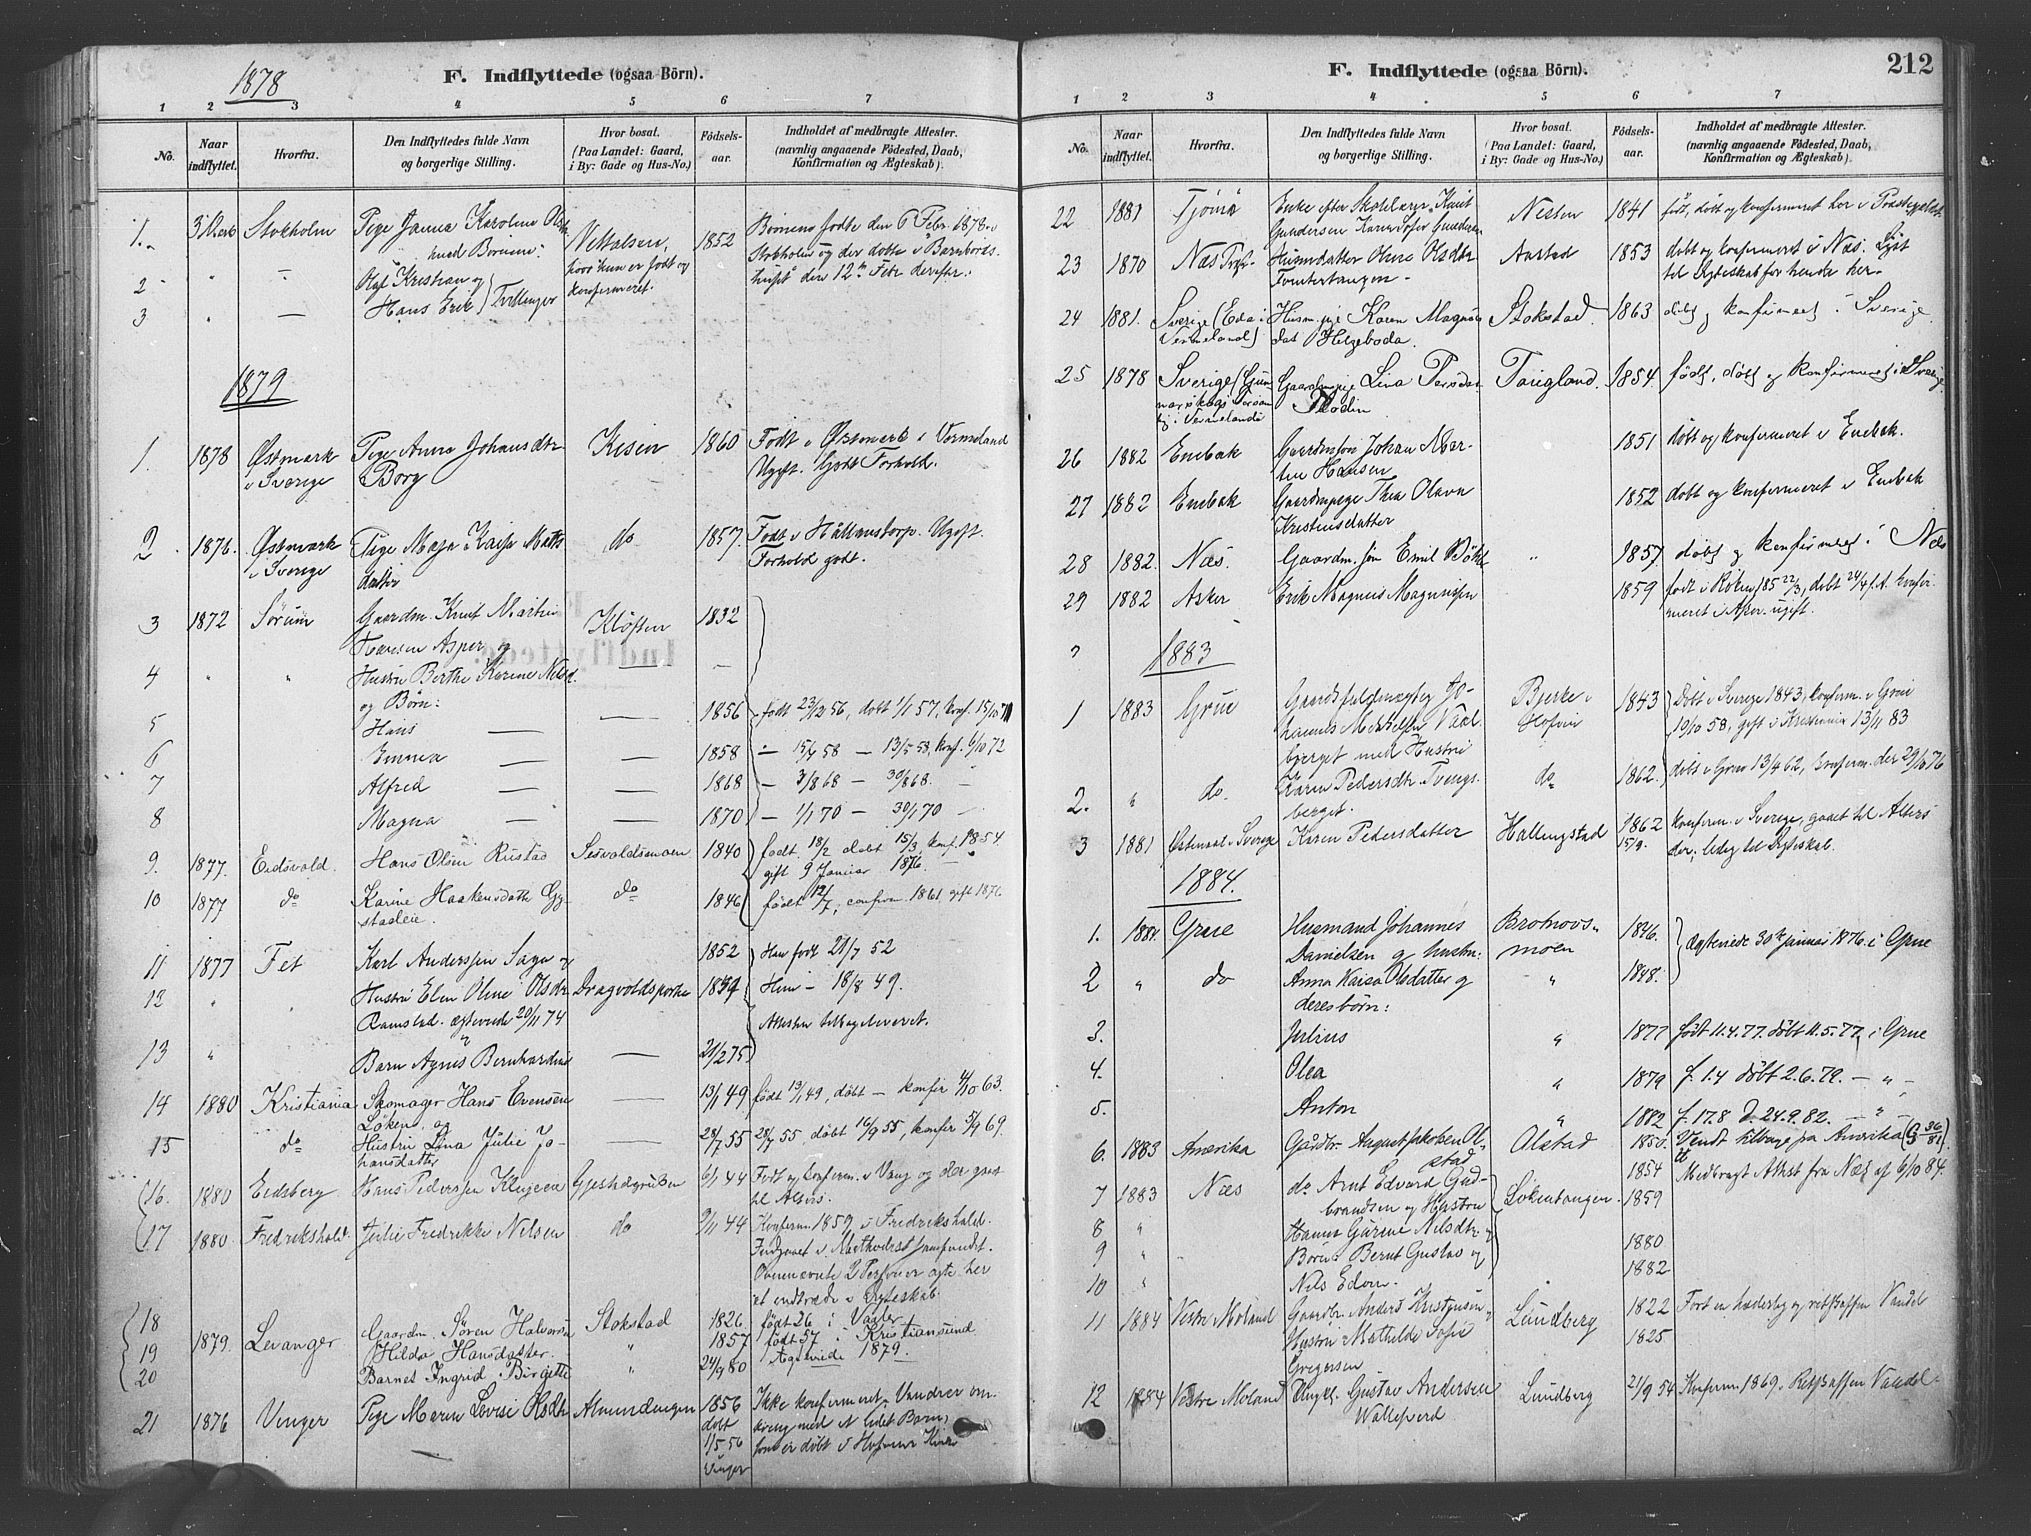 1878
F. Indflyttede (ogsaa Börn).
1 2 3 4 5 6 7
No. Naar indflyttet. Hvorfra. Den Indflyttedes fulde Navn og borgerlige Stilling. Hvor bosat. (Paa Landet: Gaard, i By: Gade og Hus-No.) Födsels-aar. Indholdet af medbragte Attester. (navnlig angaaende Födested, Daab, Konfirmation og Ægteskab).
1. Stokholm Pige Janna Karoline
med Börnene: 1852 Börnene födte den 6 Febr. 1878 i
Stokholm og der döbte i
den 12te Febr derefter.
2 " — Olaf Kristian og hvor hun er födt og
3 " — Hans Erik Tvillinger konfirmeret.
1879
1. 1878 Östmark Pige Anna Johansdtr Kisen 1860 Födt i Östmark i Vermeland
i Sverige Borg Ugift. Godt Forhold.
2 1876. Östmark Pige Maja Kajsa Matts do 1857. Födt i Ugift.
i Sverige datter Forhold godt.
3 1872 Sörum Gaardm. Knut Martin Klöften 1832
Hansen Asper og
4 " " Hustru Berthe Karine Nilsd. — —
og Börn:
5 Hans — — 1856 födt 23/12 56, döbt 1/1 57, konf. 15/10 71
6 Emma — — 1858 " 15/4 58 — 13/5 58, konf. 6/10 72
7 Alfred — — 1868 — 3/8 68 — 30/8 68. —
8 Magna — — 1870 — 1/1 70 — 30/1 70 —
9. 1877. Eidsvold. Hans Olsen Rustad Sesvoldsmoen 1840 födt 18/2 döbt 15/3, konf. 1854.
gift 9 Januar 1876. —
10 1877 do Karine Haakensdatter Gy- do 1846 födt 12/7, confirm. 1861 gift 1876
stadeie.
11 1877 Fet Karl Anderssen Saga og 1852 Han födt 21/7 52
12 " " Hustru Elen Oline Olsdtr Dragvoldsporten 1849 Hun — 18/8 49.
Ramstad. ægteviede 20/11 74 Attester tilbageleveret.
13 " Barn Agnes Bernhardine — 21/2 75
14 1880 Kristiania Skomager Hans Evensen — 13/1 49 födt 13/1 49, döbt — konfir 4/10 63.
Löken, og
15 do Hustru Lina Julie Jo- — 28/7 55 28/7 55, döbt 16/9 55, konfir 5/9 69.
hansdatter
16. 1880 Eidsberg Hans Pederssen 6/1 44 Födt og konfirm. i Vang og der gået
til Alters.
17 1880. Fredrikshald. Julie Fredrikke Nilsen do 9/11 44 Konfirm. 1859 i Fredrikshald.
Indgaaet i
Ovennævnte 2 Personer agte her
at indtræde i Ægteskab.
18 Gaardm. Sören Halvorsen Stokstad 1826 födt 26 i Vaaler
19 1879 Levanger Hilda Hansdatter. " 1857 födt 57 i Kristiansund
20 Barnet Ingrid Birgitte " 24/9 80 Ægteviede 1879.
21 1876 Vinger Pige Maren Lovise Olsdtr Almendingen 1856 Ikke konfirmeret. Vandrer om-
döbt kring med et lidet Barn,
1/5 56 som er döbt i
Vinger
F. Indflyttede (ogsaa Börn).
212
1 2 3 4 5 6 7
No. Naar indflyttet. Hvorfra. Den Indflyttedes fulde Navn og borgerlige Stilling. Hvor bosat. (Paa Landet: Gaard, i By: Gade og Hus-No.) Födsels-aar. Indholdet af medbragte Attester. (navnlig angaaende Födested, Daab, Konfirmation og Ægteskab).
22 1881 Tjömö Enke efter Skolelærer Knut Nesten 1841 födt, döbt og konfirmeret her i Præstegjeldet
Gundersen Karen Sofie Gundersen
23 1870 Næs Husmdatter Oline Olsdtr Aarstad 1853 döbt og konfirmeret i Næs. Lyst
til Ægteskab for hende her.
24 1881. Sverige (Eda i Husm.pige Karen Magnus Stokstad. 1863 döbt og konfirmeret i Sverige.
Vermeland) dat. Helgeboda.
25 1878 Sverige (Gun- Gaardmpige Lina Persdat. Taugland. 1854. födt, döbt og konfirmeret i Sverige
i Vermeland
26 1882 Enebak Gaardmsön Johan Mar- 1851 döbt og konfirmeret i Enebak.
tin Hansen
27 1882 Enebak Gaardmpige Thea Olava 1852 döbt og konfirmeret i Enebak
Kristiansdatter
28 1882. Næs. Gaardm. sön Emil " 1857 döbt og konfirmeret i Næs
29 1882 Asker Erik Magnus Magnussen 1859 födt i Röken 1859 22/3, döbt 24/4 s.A. konfir-
meret i Asker. ugift.
1883
1 1883 Grue Gaardsfuldmægtig Jo- Bjerke i 1843 Döbt i Sverige 1843, konfirm. i Grue
hannes Mikkelsen Hofvin 10/10 58, gift i Kristiania 13/11 83
berget med Hustru
2. " do. Karen Pedersdtr do 1862. döbt i Grue 13/4 62, konfirm. der 29/10 76
berget.
3 1881 i Sverige Karen Pedersdatter Hallingstad 1862 konfirm. i Sverige, gaaet til Alters
15/9. der; ledig til Ægteskab.
1884.
1. 1881. Grue Husmand Johannes Brotnovs- 1846. Ægteviede 30te januar 1876. i Grue
Danielsen og hustru: moen
2 " do Anna Kaisa Olsdatter og " 1848.
deres börn:
3. Julius " 1877 födt 11.4.77. döbt 11.5.77. i Grue
4. Olea " 1879 f. 1.4 döbt 2.6.79. — " —
5. Anton " 1882 f. 17.8 d. 24.9.82. — " —
6. 1883 Amerika Gårdbr. August Jakobsen Ol- Olstad 1850. Vendt tilbage fra Amerika
stad
7 1883 Næs do Arnt Edvard Gud- Lökentangen 1854 Medbragt Attest fra Næs af 6/10 84.
brandsen og Hustru 1859
8 " Gurine Nilsdtr og
9 " " Börn: Bernt Gustav og 1880
10 " Nils Edvin. 1882
11 1884 Vestre Moland Gaardbr. Anders Lundberg 1822 Fört en hæderlig og retskaffen Vandel
Hustru Mathilde Sofie 1825
Gregersen
12 1884 Vestre Moland Ungkl. Gustav Andersen Lundberg 21/9 54 Konfirm. 1869. Retskaffen Vandel.